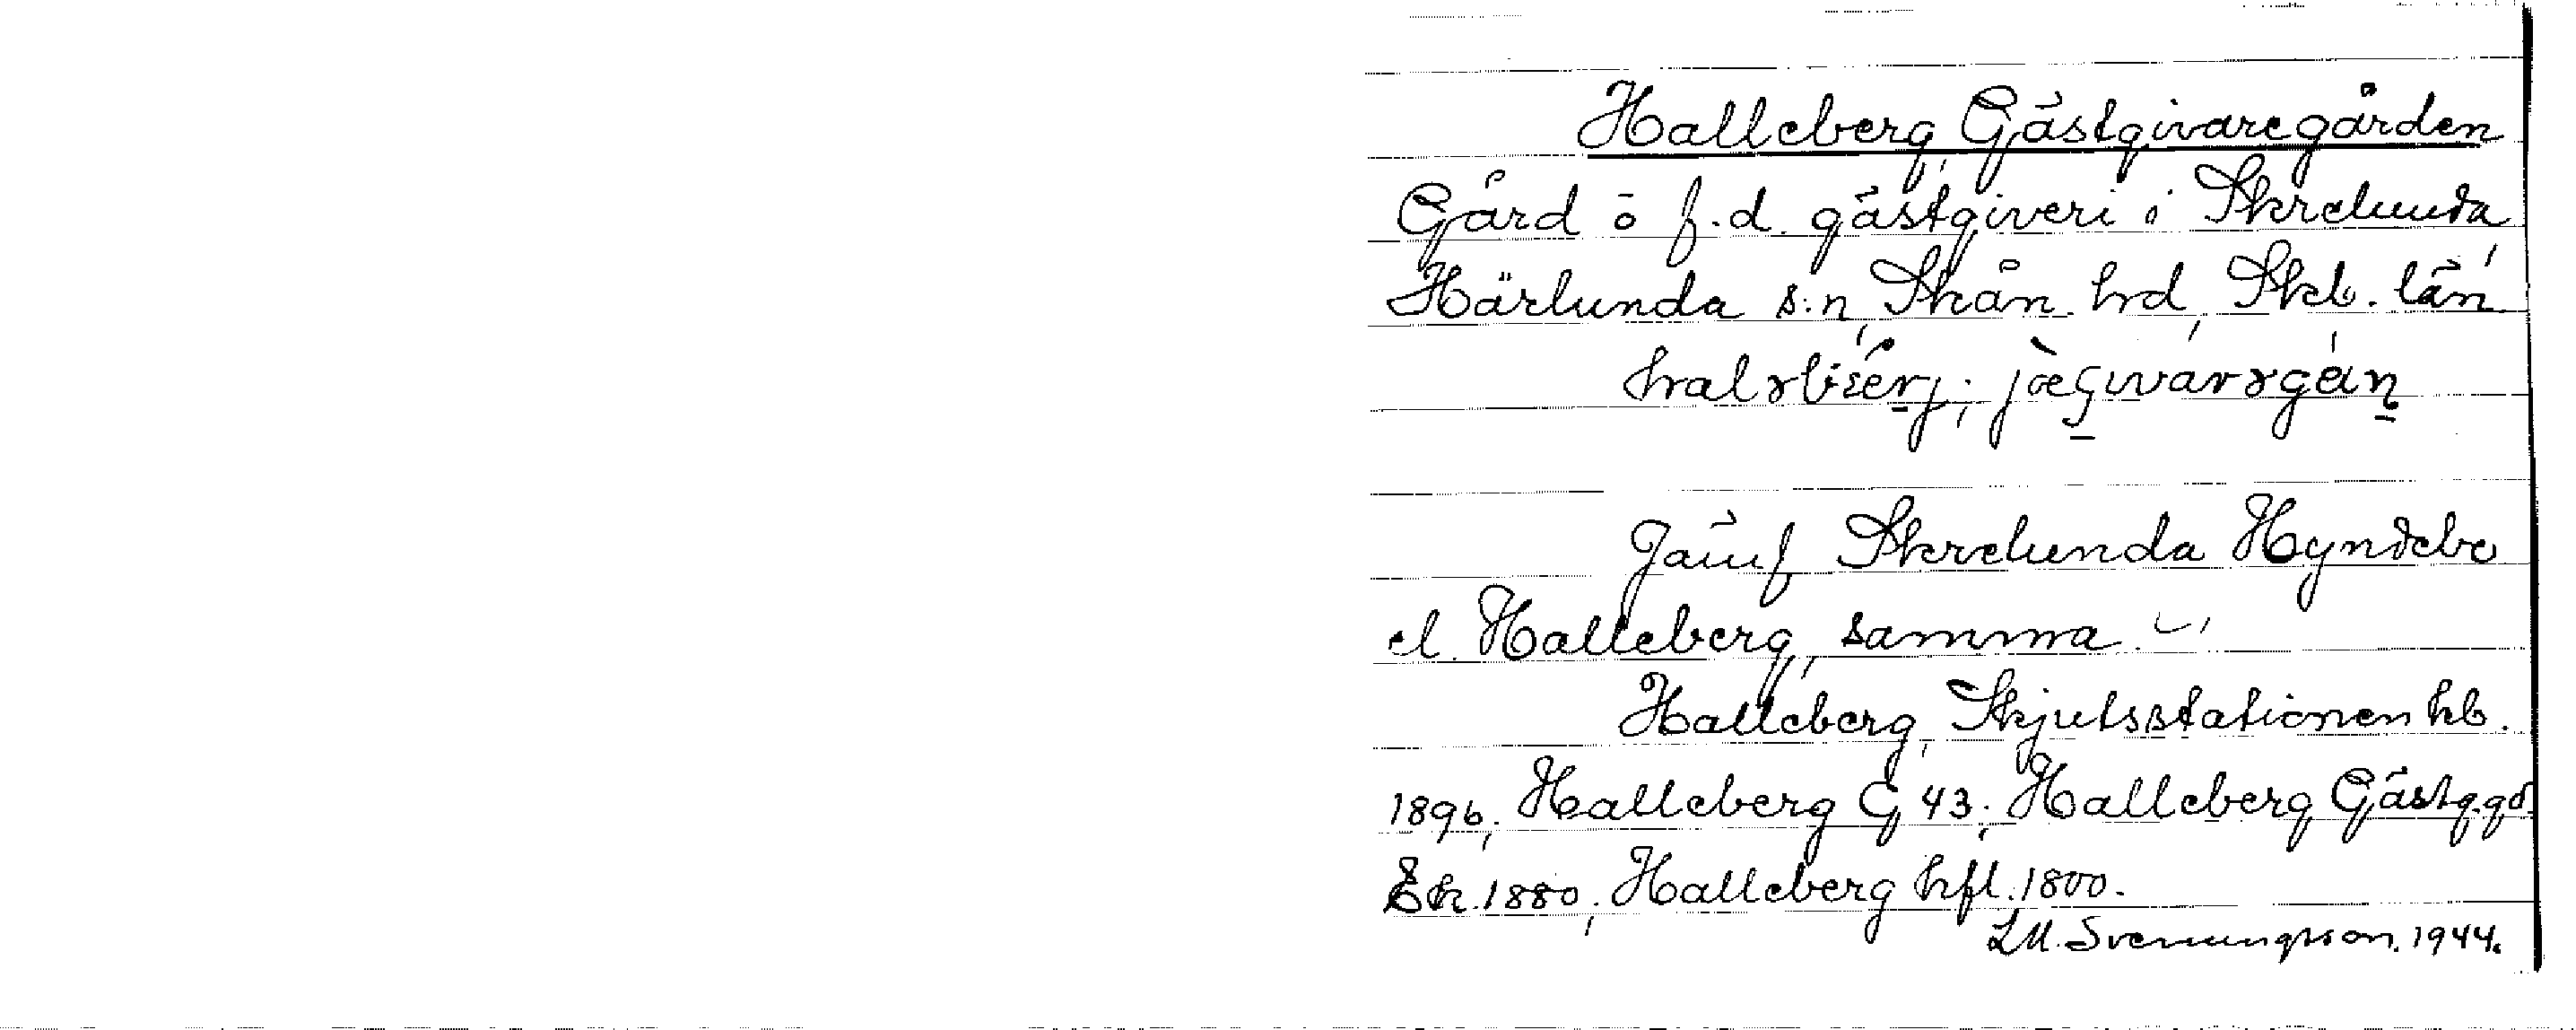 Halleberg, Gästgivaregården
Gård o f.d. gästgiveri i Skrelunda,
Härlunda s:n, Skån. hrd, Skb. län.
Jämf Skrelunda Hyndebo
el. Halleberg, samma
Halleberg, Skjutsstationen kb.
1896; Halleberg G 43; Halleberg Gästg.gd.
Ek. 1880; Halleberg hfl. 1800.
LM. Svenungsson. 1944.